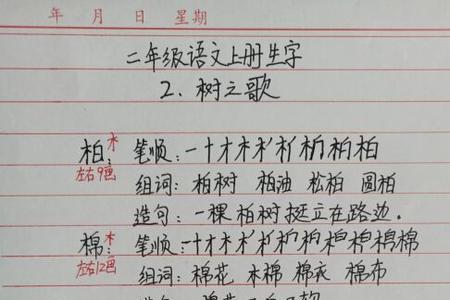 年 月 日 星期
二年级语文上册生字
2、树之歌
柏:木 笔顺:一十才木木' 朩 柏 柏 柏
左右9画 组词:柏树 柏油 松柏 圆柏
造句:一棵柏树挺立在路边。
棉:木 笔顺:一十才木
左右12画 组词:棉花 木棉 棉衣 棉布